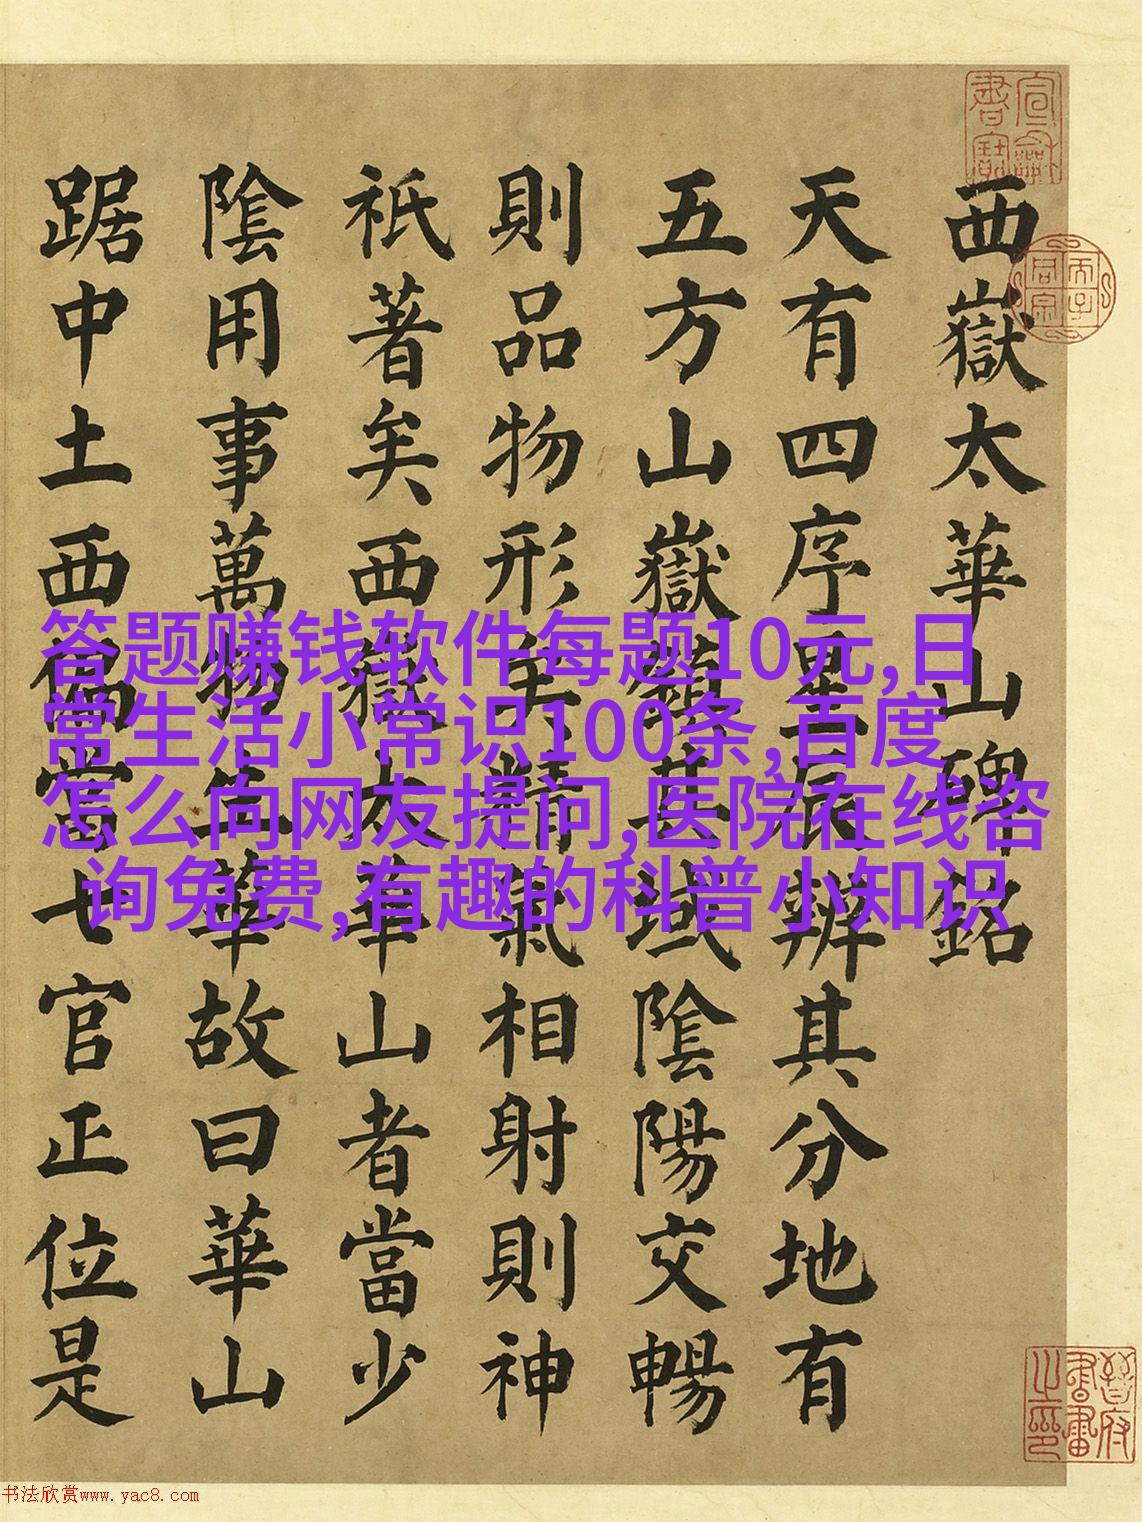 西嶽太華山碑銘
天有四序星辰辨其分地有
五方山嶽鎮其域隂陽交暢
則品物形生精氣相射則神
祇著矣西嶽太華山者當少
隂用事萬物生華故曰華山
踞中土西偏當七官正位是
答题赚钱软件每题10元,日
常生活小常识100条,百度
怎么向网友提问,医院在线咨
询免费,有趣的科普小知识
晉府書畫之印
书法欣赏www.yac8.com